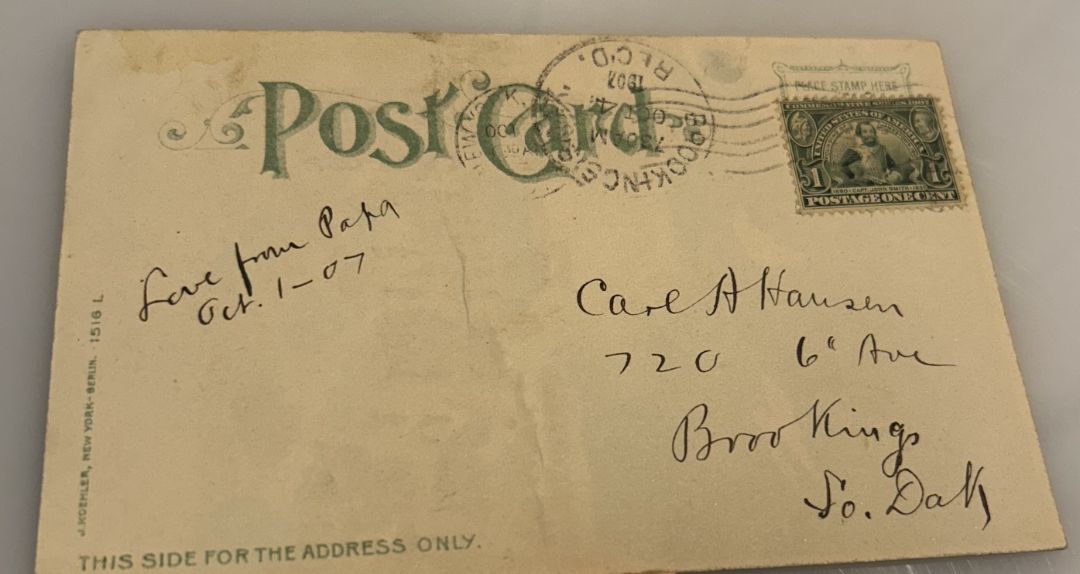 Post Card
PLACE STAMP HERE
BROOKINGS
REC'D.
1907
COMMEMORATIVE SERIES 1907
UNITED STATES OF AMERICA
1 1
1580 · CAPT. JOHN SMITH · 1631
POSTAGE ONE CENT
Love from Papa
Oct. 1-07
Carl A Hansen
720 6" Ave
Brookings
So. Dak
J. KOEHLER, NEW YORK-BERLIN. 1516 L
THIS SIDE FOR THE ADDRESS ONLY.